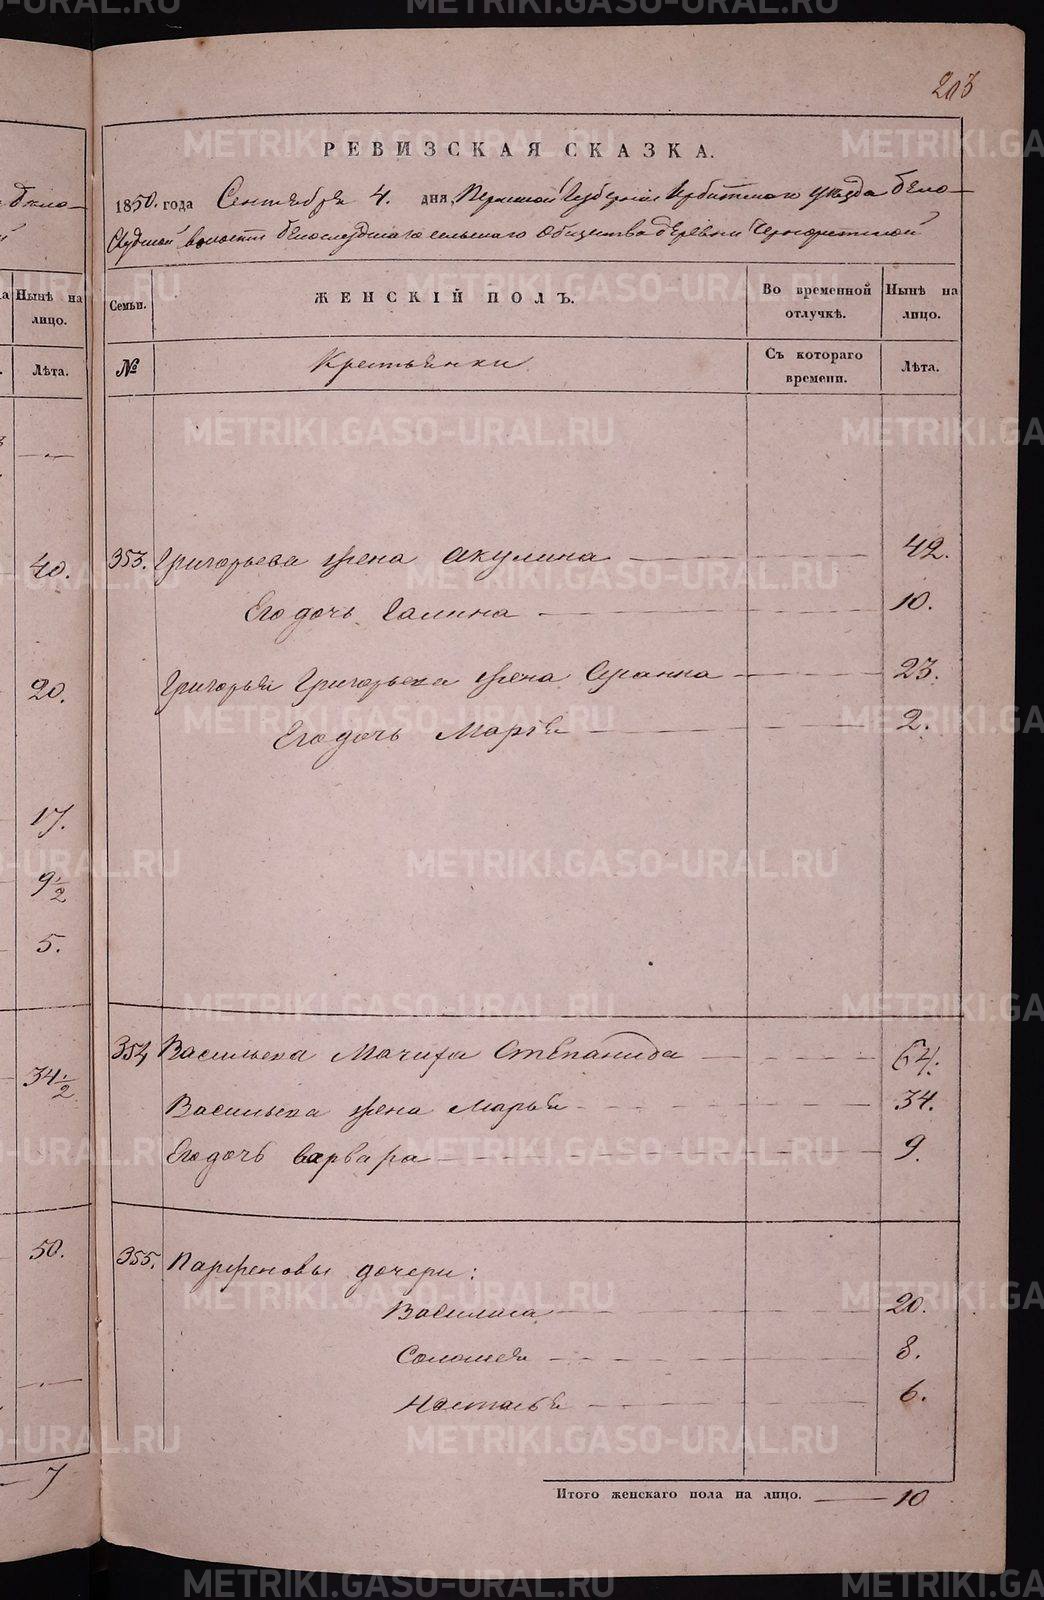 203
РЕВИЗСКАЯ СКАЗКА.
1850. года Сентября 4. дня, Пермской Губернии Ирбитскаго уезда Бело-
слудской волости Белослудскаго сельскаго общества деревни
Семьи. ЖЕНСКІЙ ПОЛЪ. Во временной отлучкѣ. Нынѣ на лицо.
№ Крестьянки Съ котораго времени. Лѣта.
353. Григорьева жена Акулина 42.
Его дочь Галина 10.
Григорья Григорьева жена 23.
Его дочь Марія 2.
354 Васильева Мачиха Степанида 64.
Васильева жена Марья 34.
Его дочь Варвара 9.
355. Парфеновы дочери:
Василиса 20.
Соломея 8.
Настасья 6.
Итого женскаго пола на лицо. 10
Бело-
Нынѣ на лицо.
Лѣта.
40.
20.
17.
9 1/2
5.
34 1/2
50.
7
METRIKI.GASO-URAL.RU